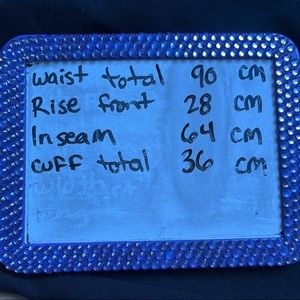 waist total 90 cm
Rise front 28 cm
Inseam 64 cm
cuff total 36 cm